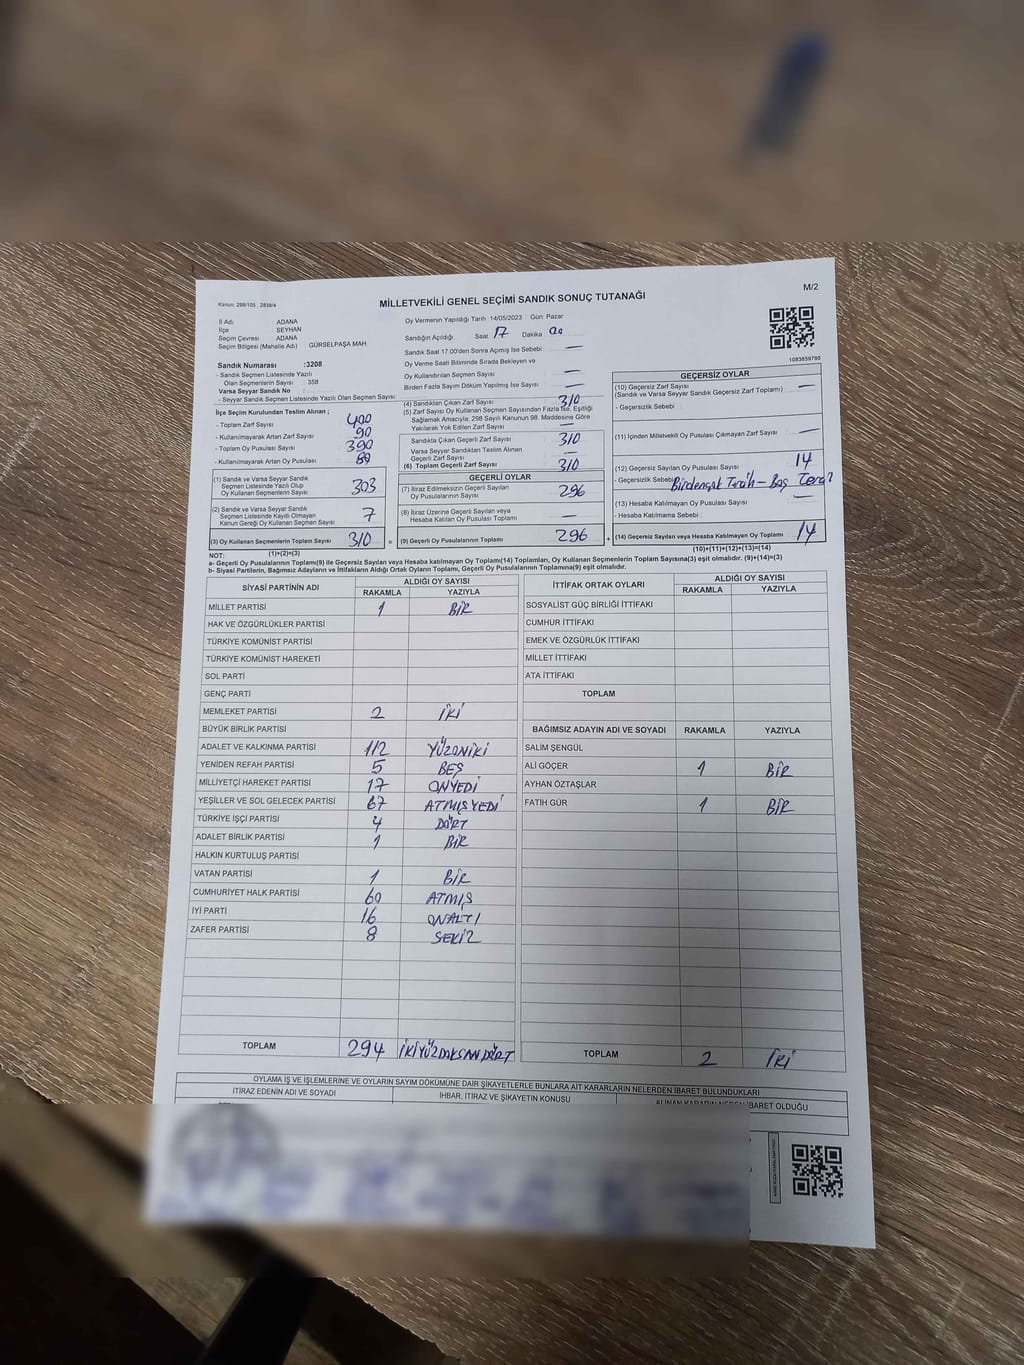 Kanun: 298/105 , 2839/4
MİLLETVEKİLİ GENEL SEÇİMİ SANDIK SONUÇ TUTANAĞI
M/2
İl Adı : ADANA
İlçe : SEYHAN
Seçim Çevresi : ADANA
Seçim Bölgesi (Mahalle Adı) : GÜRSELPAŞA MAH.
Sandık Numarası :3208
- Sandık Seçmen Listesinde Yazılı
Olan Seçmenlerin Sayısı : 358
Varsa Seyyar Sandık No :
- Seyyar Sandık Seçmen Listesinde Yazılı Olan Seçmen Sayısı :
İlçe Seçim Kurulundan Teslim Alınan ;
- Toplam Zarf Sayısı 400
- Kullanılmayarak Artan Zarf Sayısı 90
- Toplam Oy Pusulası Sayısı 390
- Kullanılmayarak Artan Oy Pusulası
(1) Sandık ve Varsa Seyyar Sandık
Seçmen Listesinde Yazılı Olup
Oy Kullanan Seçmenlerin Sayısı 303
(2) Sandık ve Varsa Seyyar Sandık
Seçmen Listesinde Kayıtlı Olmayan
Kanun Gereği Oy Kullanan Seçmen Sayısı 7
(3) Oy Kullanan Seçmenlerin Toplam Sayısı 310 =
(1)+(2)=(3)
Oy Vermenin Yapıldığı Tarih : 14/05/2023 Gün: Pazar
Sandığın Açıldığı Saat 17 Dakika 00
Sandık Saat 17:00'den Sonra Açımış İse Sebebi : —
Oy Verme Saati Bitiminde Sırada Bekleyen ve
Oy Kullandırılan Seçmen Sayısı : —
Birden Fazla Sayım Döküm Yapılmış İse Sayısı : —
(4) Sandıktan Çıkan Zarf Sayısı 310
(5) Zarf Sayısı Oy Kullanan Seçmen Sayısından Fazla İse, Eşitliği
Sağlamak Amacıyla, 298 Sayılı Kanunun 98. Maddesine Göre
Yakılarak Yok Edilen Zarf Sayısı : —
Sandıkta Çıkan Geçerli Zarf Sayısı 310
Varsa Seyyar Sandıktan Teslim Alınan
Geçerli Zarf Sayısı —
(6) Toplam Geçerli Zarf Sayısı 310
GEÇERLİ OYLAR
(7) İtiraz Edilmeksizin Geçerli Sayılan
Oy Pusulalarının Sayısı 296
(8) İtiraz Üzerine Geçerli Sayılan veya
Hesaba Katılan Oy Pusulası Toplamı —
(9) Geçerli Oy Pusulalarının Toplamı 296 +
1083659790
GEÇERSİZ OYLAR
(10) Geçersiz Zarf Sayısı —
(Sandık ve Varsa Seyyar Sandık Geçersiz Zarf Toplamı)
- Geçersizlik Sebebi :
(11) İçinden Milletvekili Oy Pusulası Çıkmayan Zarf Sayısı —
(12) Geçersiz Sayılan Oy Pusulası Sayısı 14
- Geçersizlik Sebebi
(13) Hesaba Katılmayan Oy Pusulası Sayısı —
- Hesaba Katılmama Sebebi :
(14) Geçersiz Sayılan veya Hesaba Katılmayan Oy Toplamı 14
(10)+(11)+(12)+(13)=(14)
NOT:
a- Geçerli Oy Pusulalarının Toplamı(9) ile Geçersiz Sayılan veya Hesaba katılmayan Oy Toplamı(14) Toplamları, Oy Kullanan Seçmenlerin Toplam Sayısına(3) eşit olmalıdır. (9)+(14)=(3)
b- Siyasi Partilerin, Bağımsız Adayların ve İttifakların Aldığı Ortak Oyların Toplamı, Geçerli Oy Pusulalarının Toplamına(9) eşit olmalıdır.
SİYASİ PARTİNİN ADI ALDIĞI OY SAYISI
RAKAMLA YAZIYLA
MİLLET PARTİSİ 1 BİR
HAK VE ÖZGÜRLÜKLER PARTİSİ
TÜRKİYE KOMÜNİST PARTİSİ
TÜRKİYE KOMÜNİST HAREKETİ
SOL PARTİ
GENÇ PARTİ
MEMLEKET PARTİSİ 2 İKİ
BÜYÜK BİRLİK PARTİSİ
ADALET VE KALKINMA PARTİSİ 112 YÜZONİKİ
YENİDEN REFAH PARTİSİ 5 BEŞ
MİLLİYETÇİ HAREKET PARTİSİ 17 ONYEDİ
YEŞİLLER VE SOL GELECEK PARTİSİ 67 ATMIŞYEDİ
TÜRKİYE İŞÇİ PARTİSİ 4 DÖRT
ADALET BİRLİK PARTİSİ 1 BİR
HALKIN KURTULUŞ PARTİSİ
VATAN PARTİSİ 1 BİR
CUMHURİYET HALK PARTİSİ 60 ATMIŞ
İYİ PARTİ 16 ONALTI
ZAFER PARTİSİ 8 SEKİZ
TOPLAM 294 İKİYÜZDOKSANDÖRT
İTTİFAK ORTAK OYLARI ALDIĞI OY SAYISI
RAKAMLA YAZIYLA
SOSYALİST GÜÇ BİRLİĞİ İTTİFAKI
CUMHUR İTTİFAKI
EMEK VE ÖZGÜRLÜK İTTİFAKI
MİLLET İTTİFAKI
ATA İTTİFAKI
TOPLAM
BAĞIMSIZ ADAYIN ADI VE SOYADI RAKAMLA YAZIYLA
SALİM ŞENGÜL
ALİ GÖÇER 1 BİR
AYHAN ÖZTAŞLAR
FATİH GÜR 1 BİR
TOPLAM 2 İKİ
OYLAMA İŞ VE İŞLEMLERİNE VE OYLARIN SAYIM DÖKÜMÜNE DAİR ŞİKAYETLERLE BUNLARA AİT KARARLARIN NELERDEN İBARET BULUNDUKLARI
İTİRAZ EDENİN ADI VE SOYADI İHBAR, İTİRAZ VE ŞİKAYETİN KONUSU ALINAN KARARIN NEDEN İBARET OLDUĞU